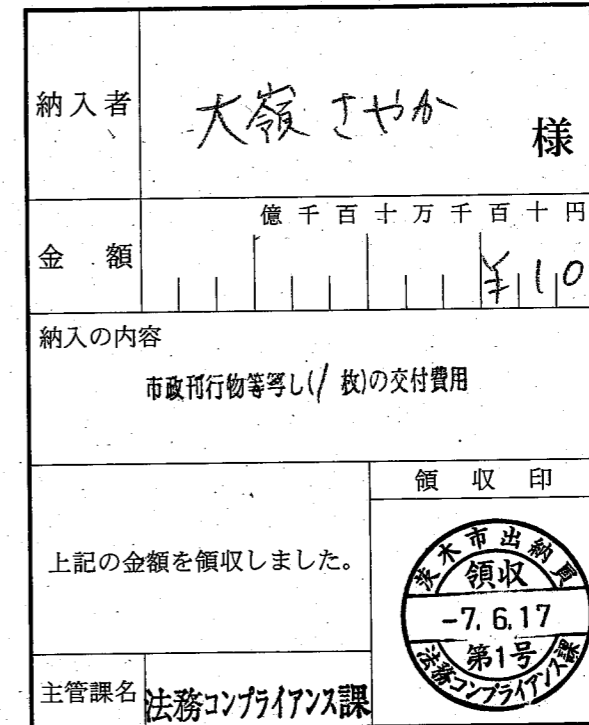 納入者
大嶺 さやか
様
億千百十万千百十円
金額
¥10
納入の内容
市政刊行物等写し(1枚)の交付費用
領収印
上記の金額を領収しました。
茨木市出納員
領収
-7.6.17
第1号
法務コンプライアンス課
主管課名 法務コンプライアンス課